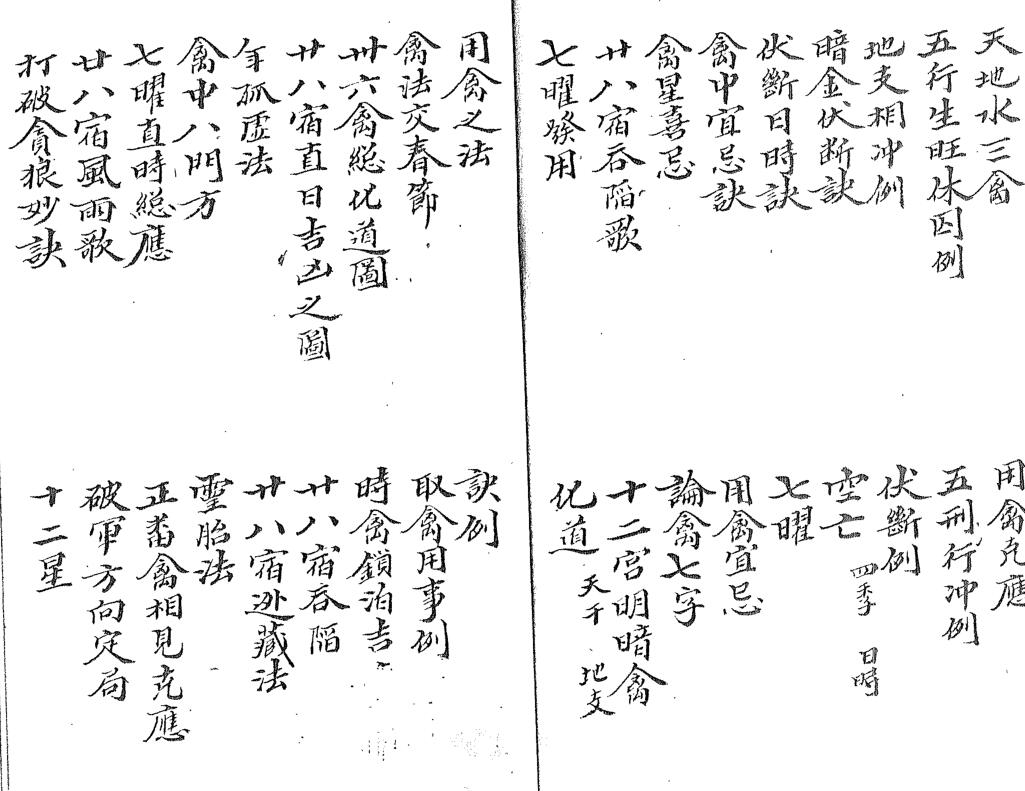 天地水三禽
五行生旺休囚例
地支相冲例
暗金伏断訣
伏斷日時訣
禽中宜忌訣
禽星喜忌
廿八宿吞啗歌
七曜發用
用禽克應
五刑行冲例
伏斷例
空亡 四季 日時
七曜
用禽宜忌
論禽七字
十二宮明暗禽
化道 天干 地支
用禽之法
禽法交春節
卅六禽総化道圖
廿八宿直日吉凶之圖
年孤虛法
禽中八門方
七曜直時総應
廿八宿風雨歌
打破貪狼妙訣
訣例
取禽用事例
時禽鎖泊吉
廿八宿吞啗
廿八宿迯藏法
霊胎法
正畨禽相見克應
破軍方向定局
十二星